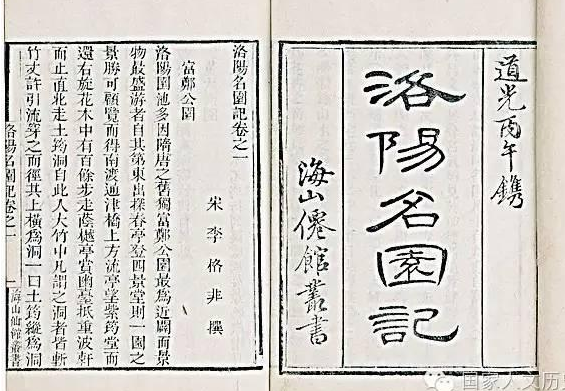 道光丙午鐫
洛陽名園記
海山僊館叢書
洛陽名園記卷之一
宋李格非撰
富鄭公園
洛陽園池多因隋唐之舊獨富鄭公園最為近闢而景
物最盛游者自其第東出探春亭登四景堂則一園之
景勝可顧覽而得南渡通津橋上方流亭望紫筠堂而
還右旋花木中有百餘步走蔭樾亭賞幽臺抵重波軒
而止直北走土筠洞自此入大竹中凡謂之洞者皆斬
竹丈許引流穿之而徑其上橫為洞一曰土筠縱為洞
洛陽名園記卷之一
一
海山仙館叢書
国家人文历史